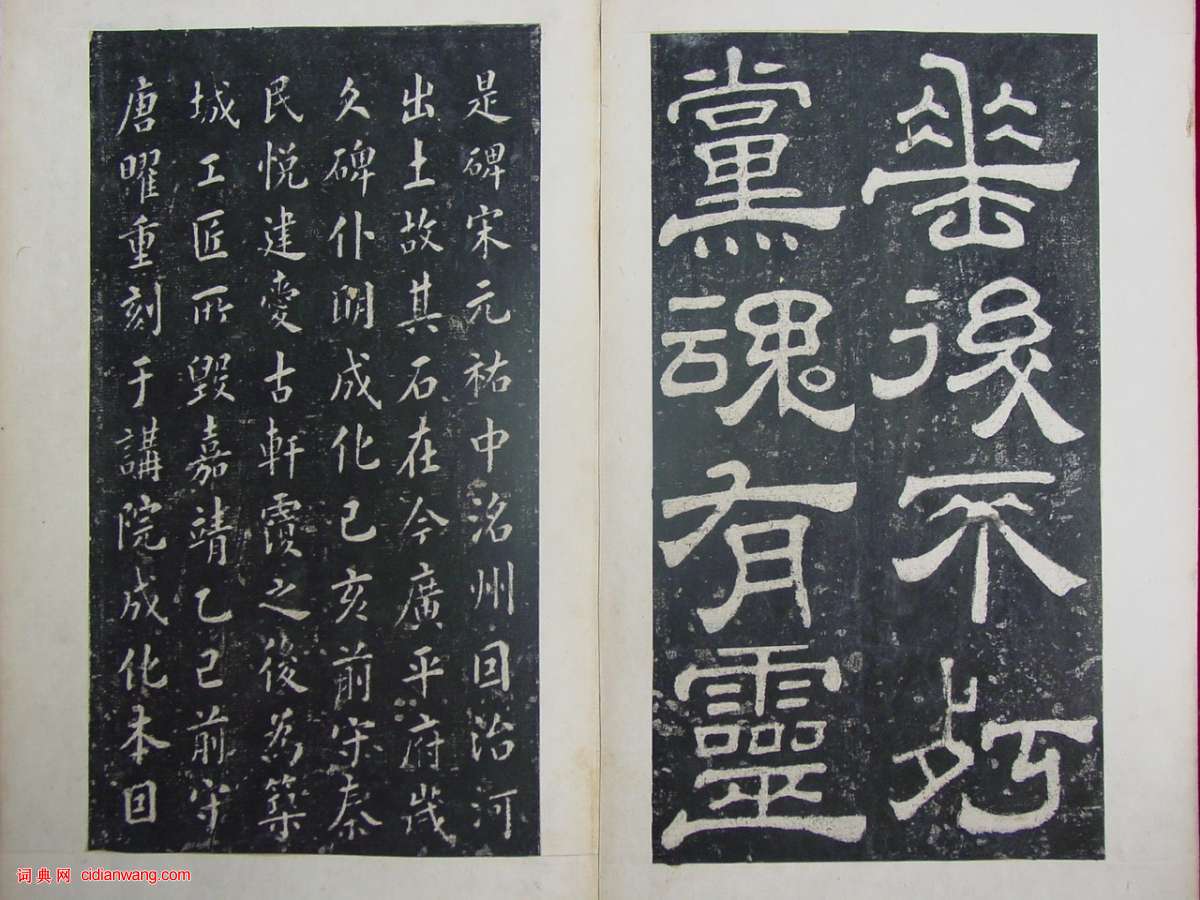 垂後不朽
黨魂有靈
是碑宋元祐中洺州回治河
出土故其石在今廣平府歲
久碑仆明成化己亥前守秦
民悦建愛古軒覆之後為築
城工匠所毀嘉靖乙巳前守
唐曜重刻于講院成化本回
词典网 cidianwang.com